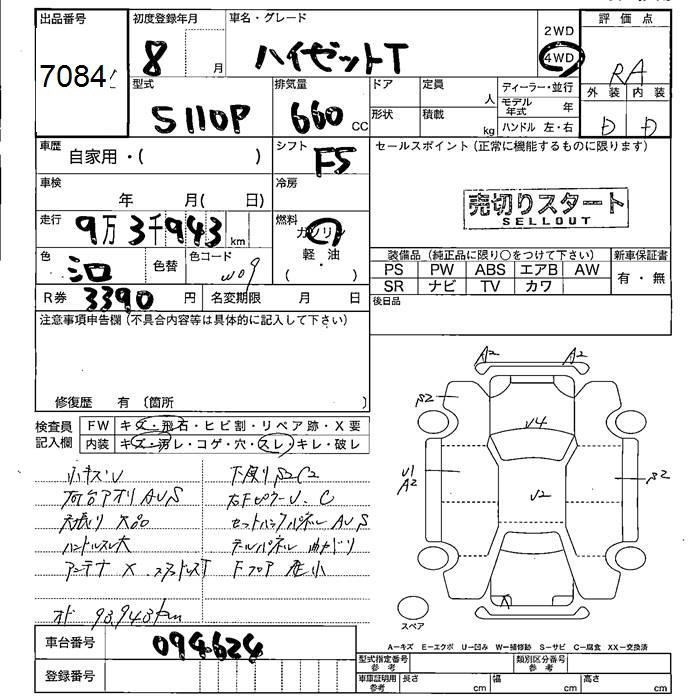 出品番号 7084
初度登録年月 8 月
車名・グレード ハイゼットT
2WD
4WD
評価点
RA
外装 内装
D D
型式 S110P
排気量 660 CC
ドア 定員 人
形状 積載 kg
ディーラー・並行
モデル年式 年
ハンドル 左・右
車歴 自家用・( )
シフト F5
セールスポイント(正常に機能するものに限ります)
車検 年 月( 日)
冷房
売切りスタート
SELLOUT
走行 9万3千943 km
燃料 ガソリン
軽・油
( )
色 シロ
色替
色コード W09
装備品(純正品に限り○をつけて下さい)
新車保証書
PS PW ABS エアB AW
SR ナビ TV カワ
有・無
R券 3390 円
名変期限 月 日
後日品
注意事項申告欄(不具合内容等は具体的に記入して下さい)
修復歴 有 〔箇所 〕
検査員記入欄
FW キズ・飛石・ヒビ割・リペア跡・X要
内装 キズ・汚レ・コゲ・穴・スレ・キレ・破レ
小キズU
荷台アオリAUS
ハンドルスレ大
アンテナX
オド 93,943km
下廻りS2C2
セットバックパネルAUS
テールパネル曲がり
A2 A2
S2
U4
U1
A2
U2
S2
X
スペア
A−キズ E−エクボ U−凹み W−補修跡 S−サビ C−腐食 XX−交換済
車台番号 094624
登録番号
型式指定番号 参考
類別区分番号 参考
車庫証明用 参考 長さ cm 幅 cm 高さ cm